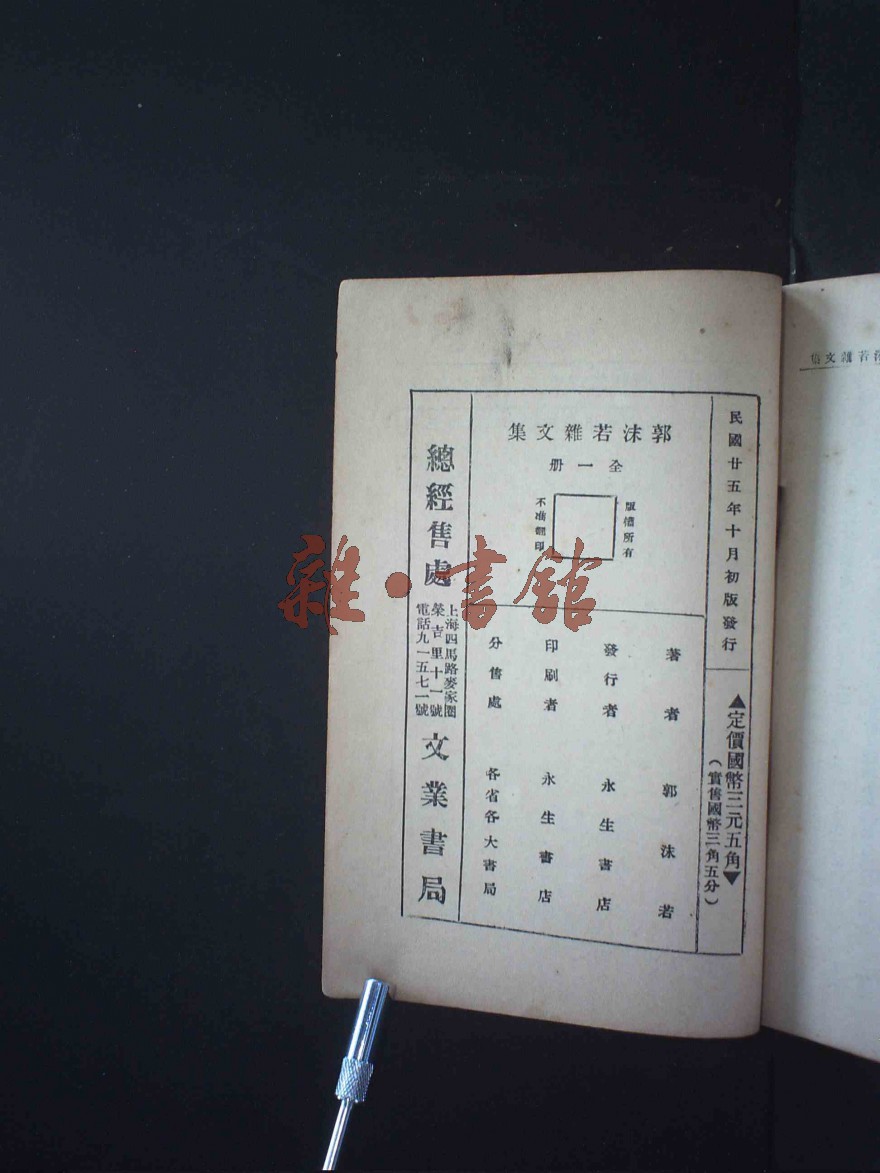 沫若雜文集
民國廿五年十月初版發行
▲定價國幣三元五角▼
（實售國幣三角五分）
郭沫若雜文集
全一冊
版權所有
不准翻印
著者 郭沫若
發行者 永生書店
印刷者 永生書店
分售處 各省各大書局
總經售處
上海四馬路麥家圈
榮吉里十一號
電話九一五七一號
文業書局
雜·書館